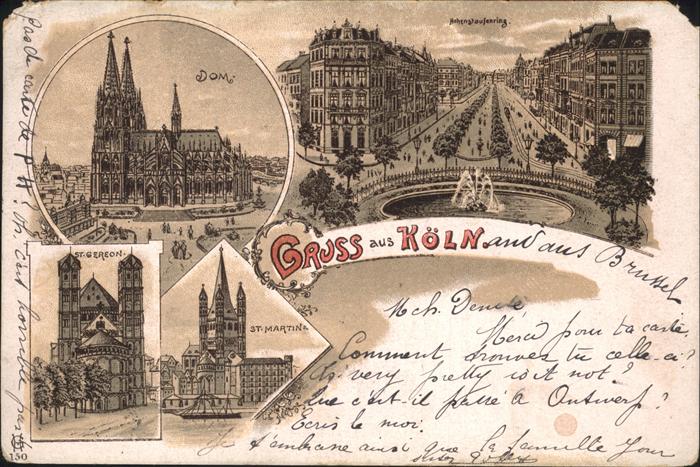 DOM.
Hohenstaufenring
ST. GEREON.
ST. MARTIN.
GRUSS AUS KÖLN. and aus Brussel
M ch.
Merci pour ta carte.
Comment trouves tu celle-ci?
Is very pretty is it not?
Que c'est-il passé à Antwerf?
Ecris le moi.
Je t'embrasse ainsi que la famille Your
Pas de carte de P H! Oh c'est horrible
150